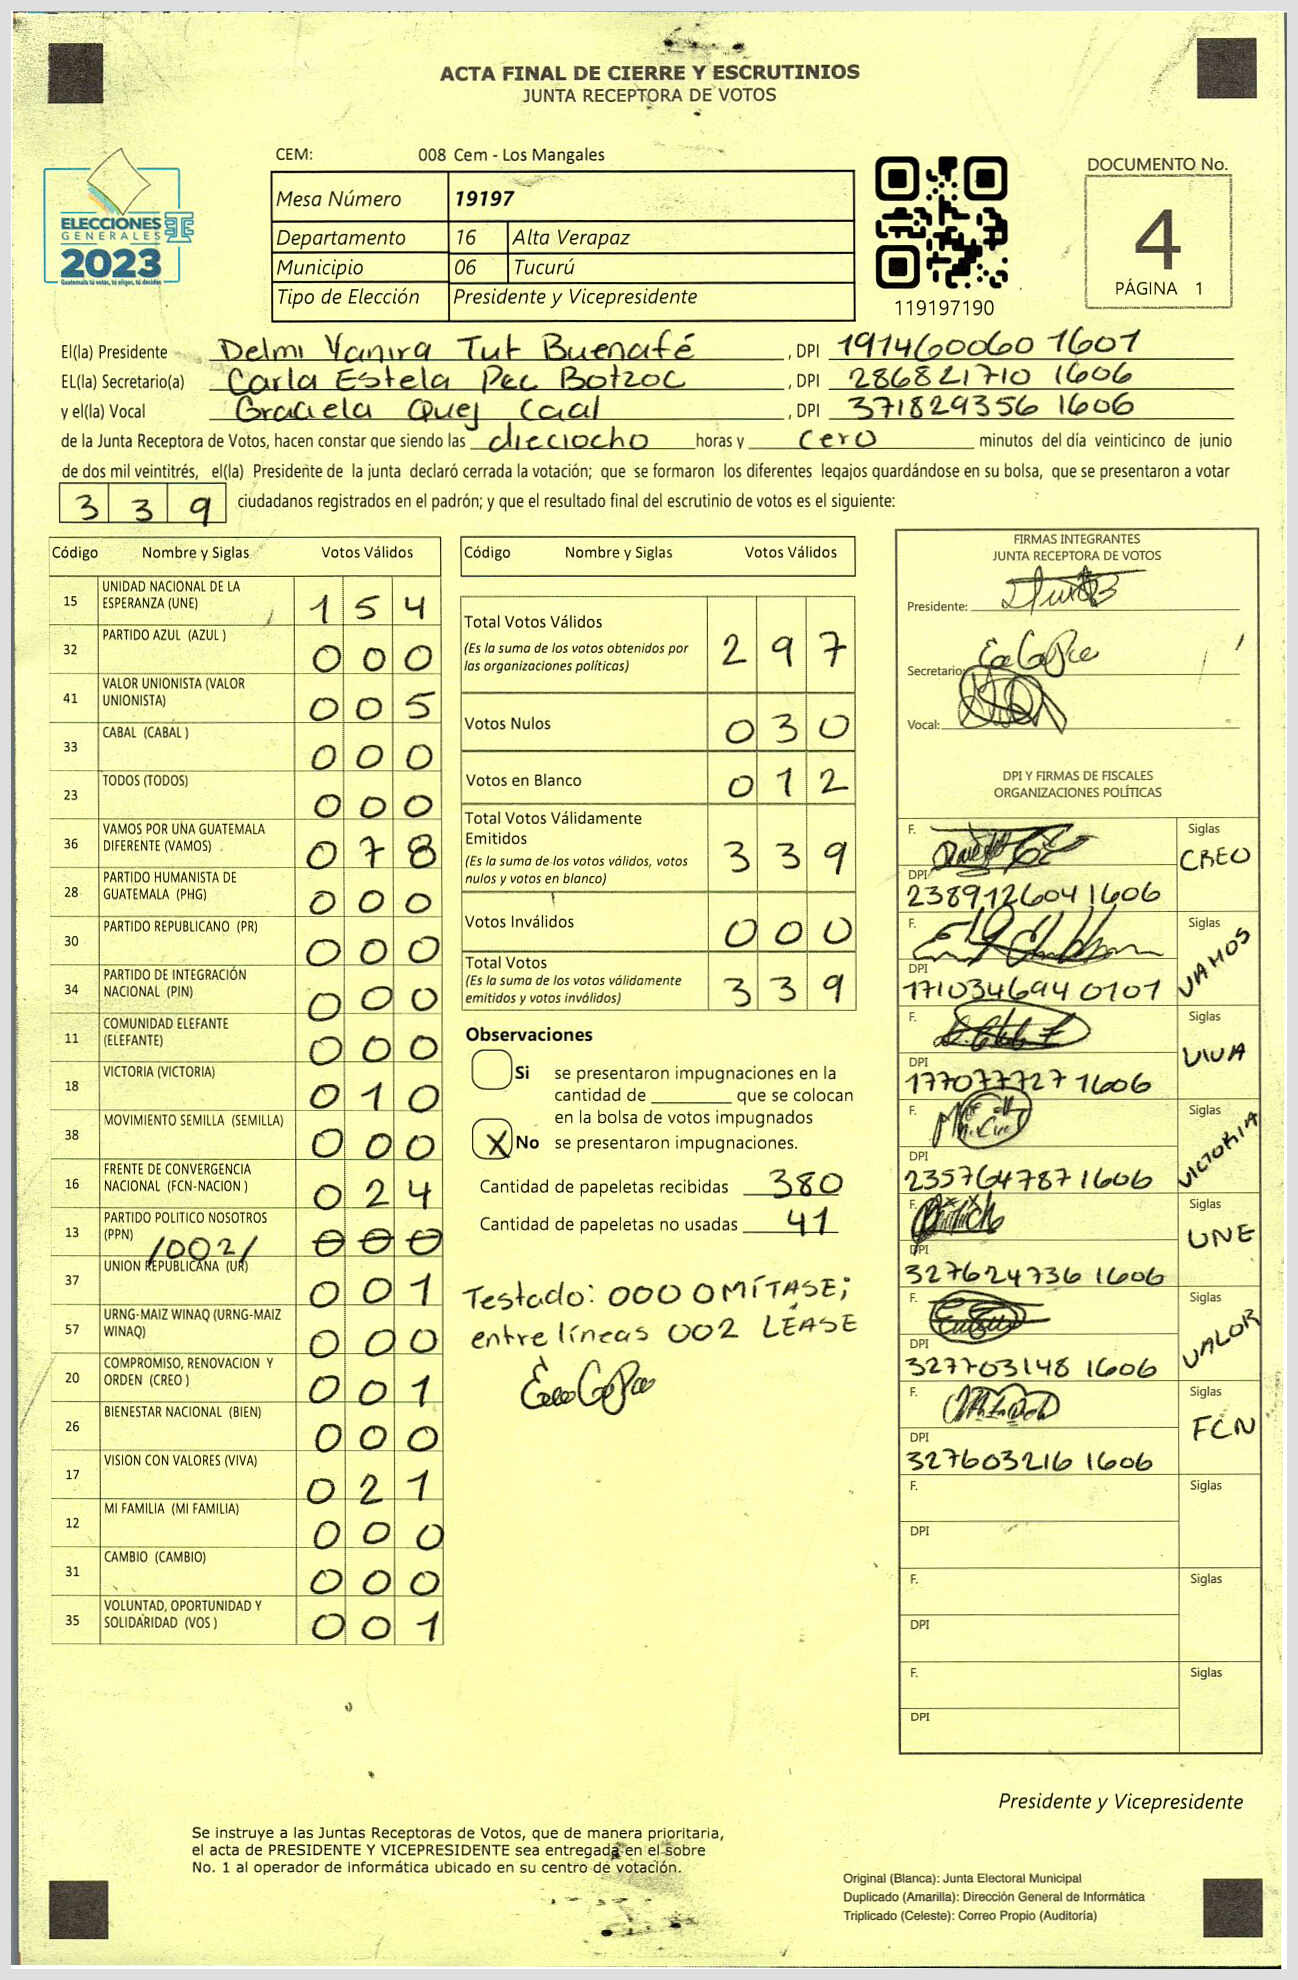 ACTA FINAL DE CIERRE Y ESCRUTINIOS
JUNTA RECEPTORA DE VOTOS
ELECCIONES
GENERALES
2023
Guatemala tú votas, tú eliges, tú decides
CEM: 008 Cem - Los Mangales
Mesa Número 19197
Departamento 16 Alta Verapaz
Municipio 06 Tucurú
Tipo de Elección Presidente y Vicepresidente
119197190
DOCUMENTO No.
4
PÁGINA 1
El(la) Presidente Delmi Yanira Tut Buenafé , DPI 191460060 1607
EL(la) Secretario(a) Carla Estela Pec Botzoc , DPI 286821710 1606
y el(la) Vocal Graciela Quej Caal , DPI 371829356 1606
de la Junta Receptora de Votos, hacen constar que siendo las dieciocho horas y cero minutos del día veinticinco de junio
de dos mil veintitrés, el(la) Presidente de la junta declaró cerrada la votación; que se formaron los diferentes legajos guardándose en su bolsa, que se presentaron a votar
3 3 9 ciudadanos registrados en el padrón; y que el resultado final del escrutinio de votos es el siguiente:
Código Nombre y Siglas Votos Válidos
15 UNIDAD NACIONAL DE LA ESPERANZA (UNE) 1 5 4
32 PARTIDO AZUL (AZUL ) 0 0 0
41 VALOR UNIONISTA (VALOR UNIONISTA) 0 0 5
33 CABAL (CABAL ) 0 0 0
23 TODOS (TODOS) 0 0 0
36 VAMOS POR UNA GUATEMALA DIFERENTE (VAMOS) 0 7 8
28 PARTIDO HUMANISTA DE GUATEMALA (PHG) 0 0 0
30 PARTIDO REPUBLICANO (PR) 0 0 0
34 PARTIDO DE INTEGRACIÓN NACIONAL (PIN) 0 0 0
11 COMUNIDAD ELEFANTE (ELEFANTE) 0 0 0
18 VICTORIA (VICTORIA) 0 1 0
38 MOVIMIENTO SEMILLA (SEMILLA) 0 0 0
16 FRENTE DE CONVERGENCIA NACIONAL (FCN-NACION ) 0 2 4
13 PARTIDO POLITICO NOSOTROS (PPN) /002/ 0 0 0
37 UNION REPUBLICANA (UR) 0 0 1
57 URNG-MAIZ WINAQ (URNG-MAIZ WINAQ) 0 0 0
20 COMPROMISO, RENOVACION Y ORDEN (CREO ) 0 0 1
26 BIENESTAR NACIONAL (BIEN) 0 0 0
17 VISION CON VALORES (VIVA) 0 2 1
12 MI FAMILIA (MI FAMILIA) 0 0 0
31 CAMBIO (CAMBIO) 0 0 0
35 VOLUNTAD, OPORTUNIDAD Y SOLIDARIDAD (VOS ) 0 0 1
Código Nombre y Siglas Votos Válidos
Total Votos Válidos 2 9 7
(Es la suma de los votos obtenidos por
las organizaciones políticas)
Votos Nulos 0 3 0
Votos en Blanco 0 1 2
Total Votos Válidamente
Emitidos 3 3 9
(Es la suma de los votos válidos, votos
nulos y votos en blanco)
Votos Inválidos 0 0 0
Total Votos 3 3 9
(Es la suma de los votos válidamente
emitidos y votos inválidos)
Observaciones
Si se presentaron impugnaciones en la
cantidad de ________ que se colocan
en la bolsa de votos impugnados
X No se presentaron impugnaciones.
Cantidad de papeletas recibidas 380
Cantidad de papeletas no usadas 41
Testado: 000 OMÍTASE;
entre líneas 002 LÉASE
FIRMAS INTEGRANTES
JUNTA RECEPTORA DE VOTOS
Presidente:
Secretario:
Vocal:
DPI Y FIRMAS DE FISCALES
ORGANIZACIONES POLÍTICAS
F. Siglas
CREO
DPI
238912604 1606
F. Siglas
VAMOS
DPI
171034694 0101
F. Siglas
VIVA
DPI
177077727 1606
F. Siglas
VICTORIA
DPI
235764787 1606
F. Siglas
UNE
DPI
327624736 1606
F. Siglas
VALOR
DPI
327703148 1606
F. Siglas
FCN
DPI
327603216 1606
F. Siglas
DPI
F. Siglas
DPI
F. Siglas
DPI
Presidente y Vicepresidente
Se instruye a las Juntas Receptoras de Votos, que de manera prioritaria,
el acta de PRESIDENTE Y VICEPRESIDENTE sea entregada en el sobre
No. 1 al operador de informática ubicado en su centro de votación.
Original (Blanca): Junta Electoral Municipal
Duplicado (Amarilla): Dirección General de Informática
Triplicado (Celeste): Correo Propio (Auditoría)